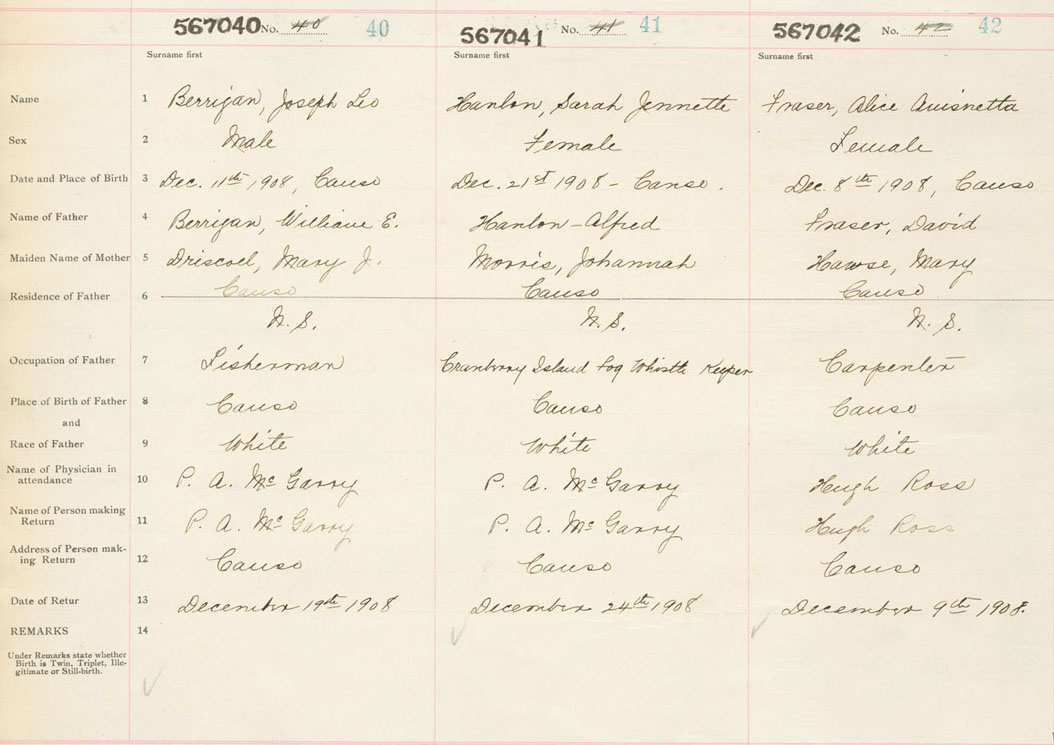 567040 No. 40 40 567041 No. 41 41 567042 No. 42 42
Surname first Surname first Surname first
Name 1 Berrigan, Joseph Leo Hanlon, Sarah Jennette Fraser, Alice
Sex 2 Male Female Female
Date and Place of Birth 3 Dec. 11th 1908, Canso Dec. 21st 1908 - Canso. Dec. 8th 1908, Canso
Name of Father 4 Berrigan, William E. Hanlon - Alfred Fraser, David
Maiden Name of Mother 5 Driscoll, Mary J. Morris, Johannah Hawse, Mary
Residence of Father 6 Canso Canso Canso
N. S. N. S. N. S.
Occupation of Father 7 Fisherman Cranberry Island Fog Whistle Keeper Carpenter
Place of Birth of Father 8 Canso Canso Canso
and
Race of Father 9 White White White
Name of Physician in
attendance 10 P. A. McGarry P. A. McGarry Hugh Ross
Name of Person making
Return 11 P. A. McGarry P. A. McGarry Hugh Ross
Address of Person mak-
ing Return 12 Canso Canso Canso
Date of Retur 13 December 19th 1908 December 24th 1908 December 9th 1908.
REMARKS 14
Under Remarks state whether
Birth is Twin, Triplet, Ille-
gitimate or Still-birth.